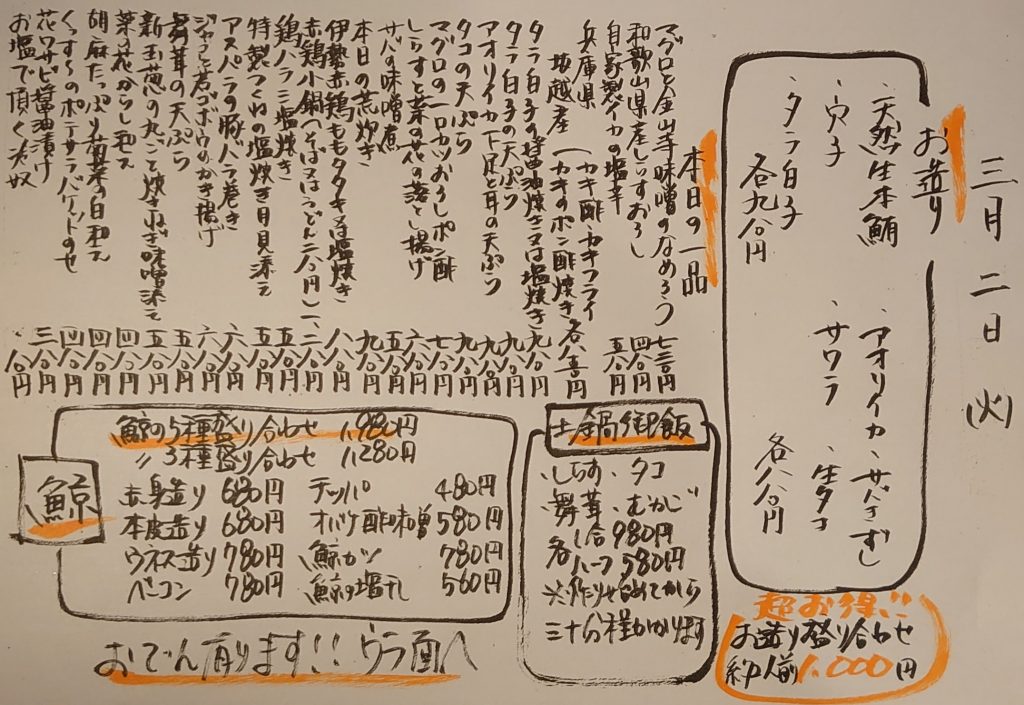 三月二日(火)
お造り
・天然生本鮪
・穴子
・タラ白子
各九八〇円
・アオリイカ・サバきずし
・サワラ・生タコ
各八八〇円
超お得!!
お造り盛り合わせ
約1人前1.000円
本日の一品
マグロと金山寺味噌のなめろう
和歌山県産しらすおろし
自家製イカの塩辛
兵庫県 坂越産(カキ酢・カキフライ
(カキのポン酢焼き
タラ白子の醤油焼き又は塩焼き 九八〇円
タラ白子の天ぷら 九八〇円
アオリイカ下足と耳の天ぷら 九八〇円
タコの天ぷら 九八〇円
マグロの一口カツおろしポン酢
しらすと菜の花の落とし揚げ
サバの味噌煮
本日の荒炊き
伊勢赤鶏ももタタキ又は塩焼き
赤鶏小鍋(そば又はうどん二八〇円)
鶏ハラミ塩焼き 五八〇円
特製つくねの塩焼き月見添え 五八〇円
アスパラの豚バラ巻き 六八〇円
ジャコと若ゴボウのかき揚げ 六八〇円
舞茸の天ぷら 五八〇円
新玉葱の丸ごと焼きねぎ味噌添え 五八〇円
菜の花からし和え 四八〇円
胡麻たっぷり菊菜の白和え 四八〇円
くっすーのポテサラバゲットのせ 四八〇円
花ワサビ醤油漬け
お塩で頂く冷奴
土鍋御飯
・しらす・タコ
・舞茸・むかご
各 1合980円
ハーフ580円
※作り始めてから
三十分程かかります
鯨
鯨の5種盛り合わせ 1,980円
〃3種盛り合わせ 1,280円
赤身造り 680円 テッパ 480円
本皮造り 680円 オバケ酢味噌 580円
ウネス造り 780円 鯨カツ 780円
ベーコン 780円 鯨の塩干し 560円
おでん有ります!!ウラ面へ